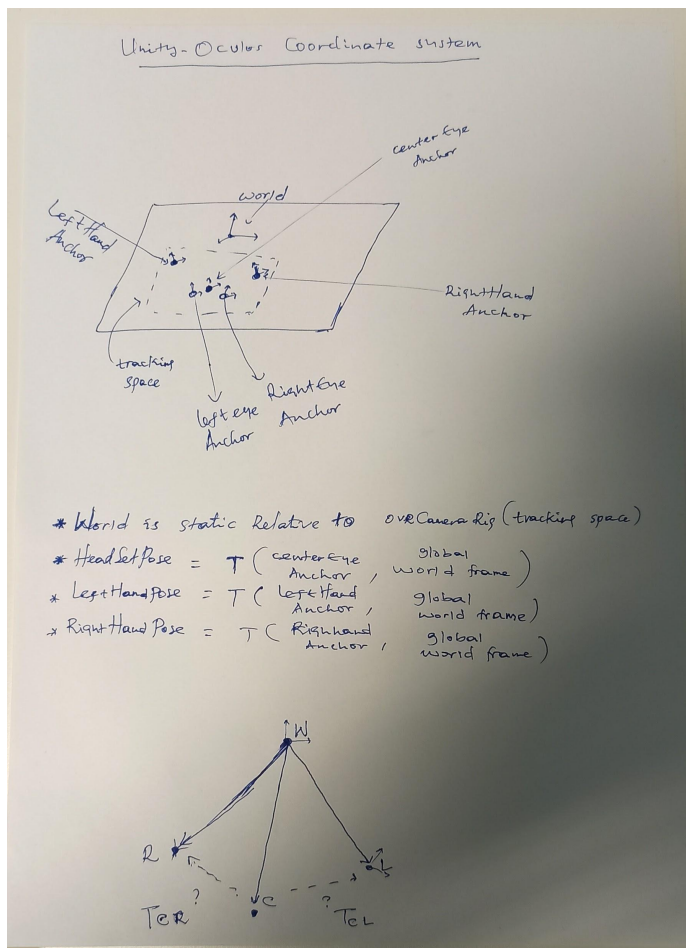 Unity-Oculus Coordinate system
centerEye
Anchor
world
LeftHand
Anchor
RightHand
Anchor
tracking
space
RightEye
Anchor
left eye
Anchor
* World is static Relative to OVRCameraRig (tracking space)
* HeadSetPose = T ( centerEye Anchor , global world frame )
* LeftHandPose = T ( leftHand Anchor , global world frame )
* RightHandPose = T ( Righhand Anchor , global world frame )
W
R
L
? C ?
TCR TCL